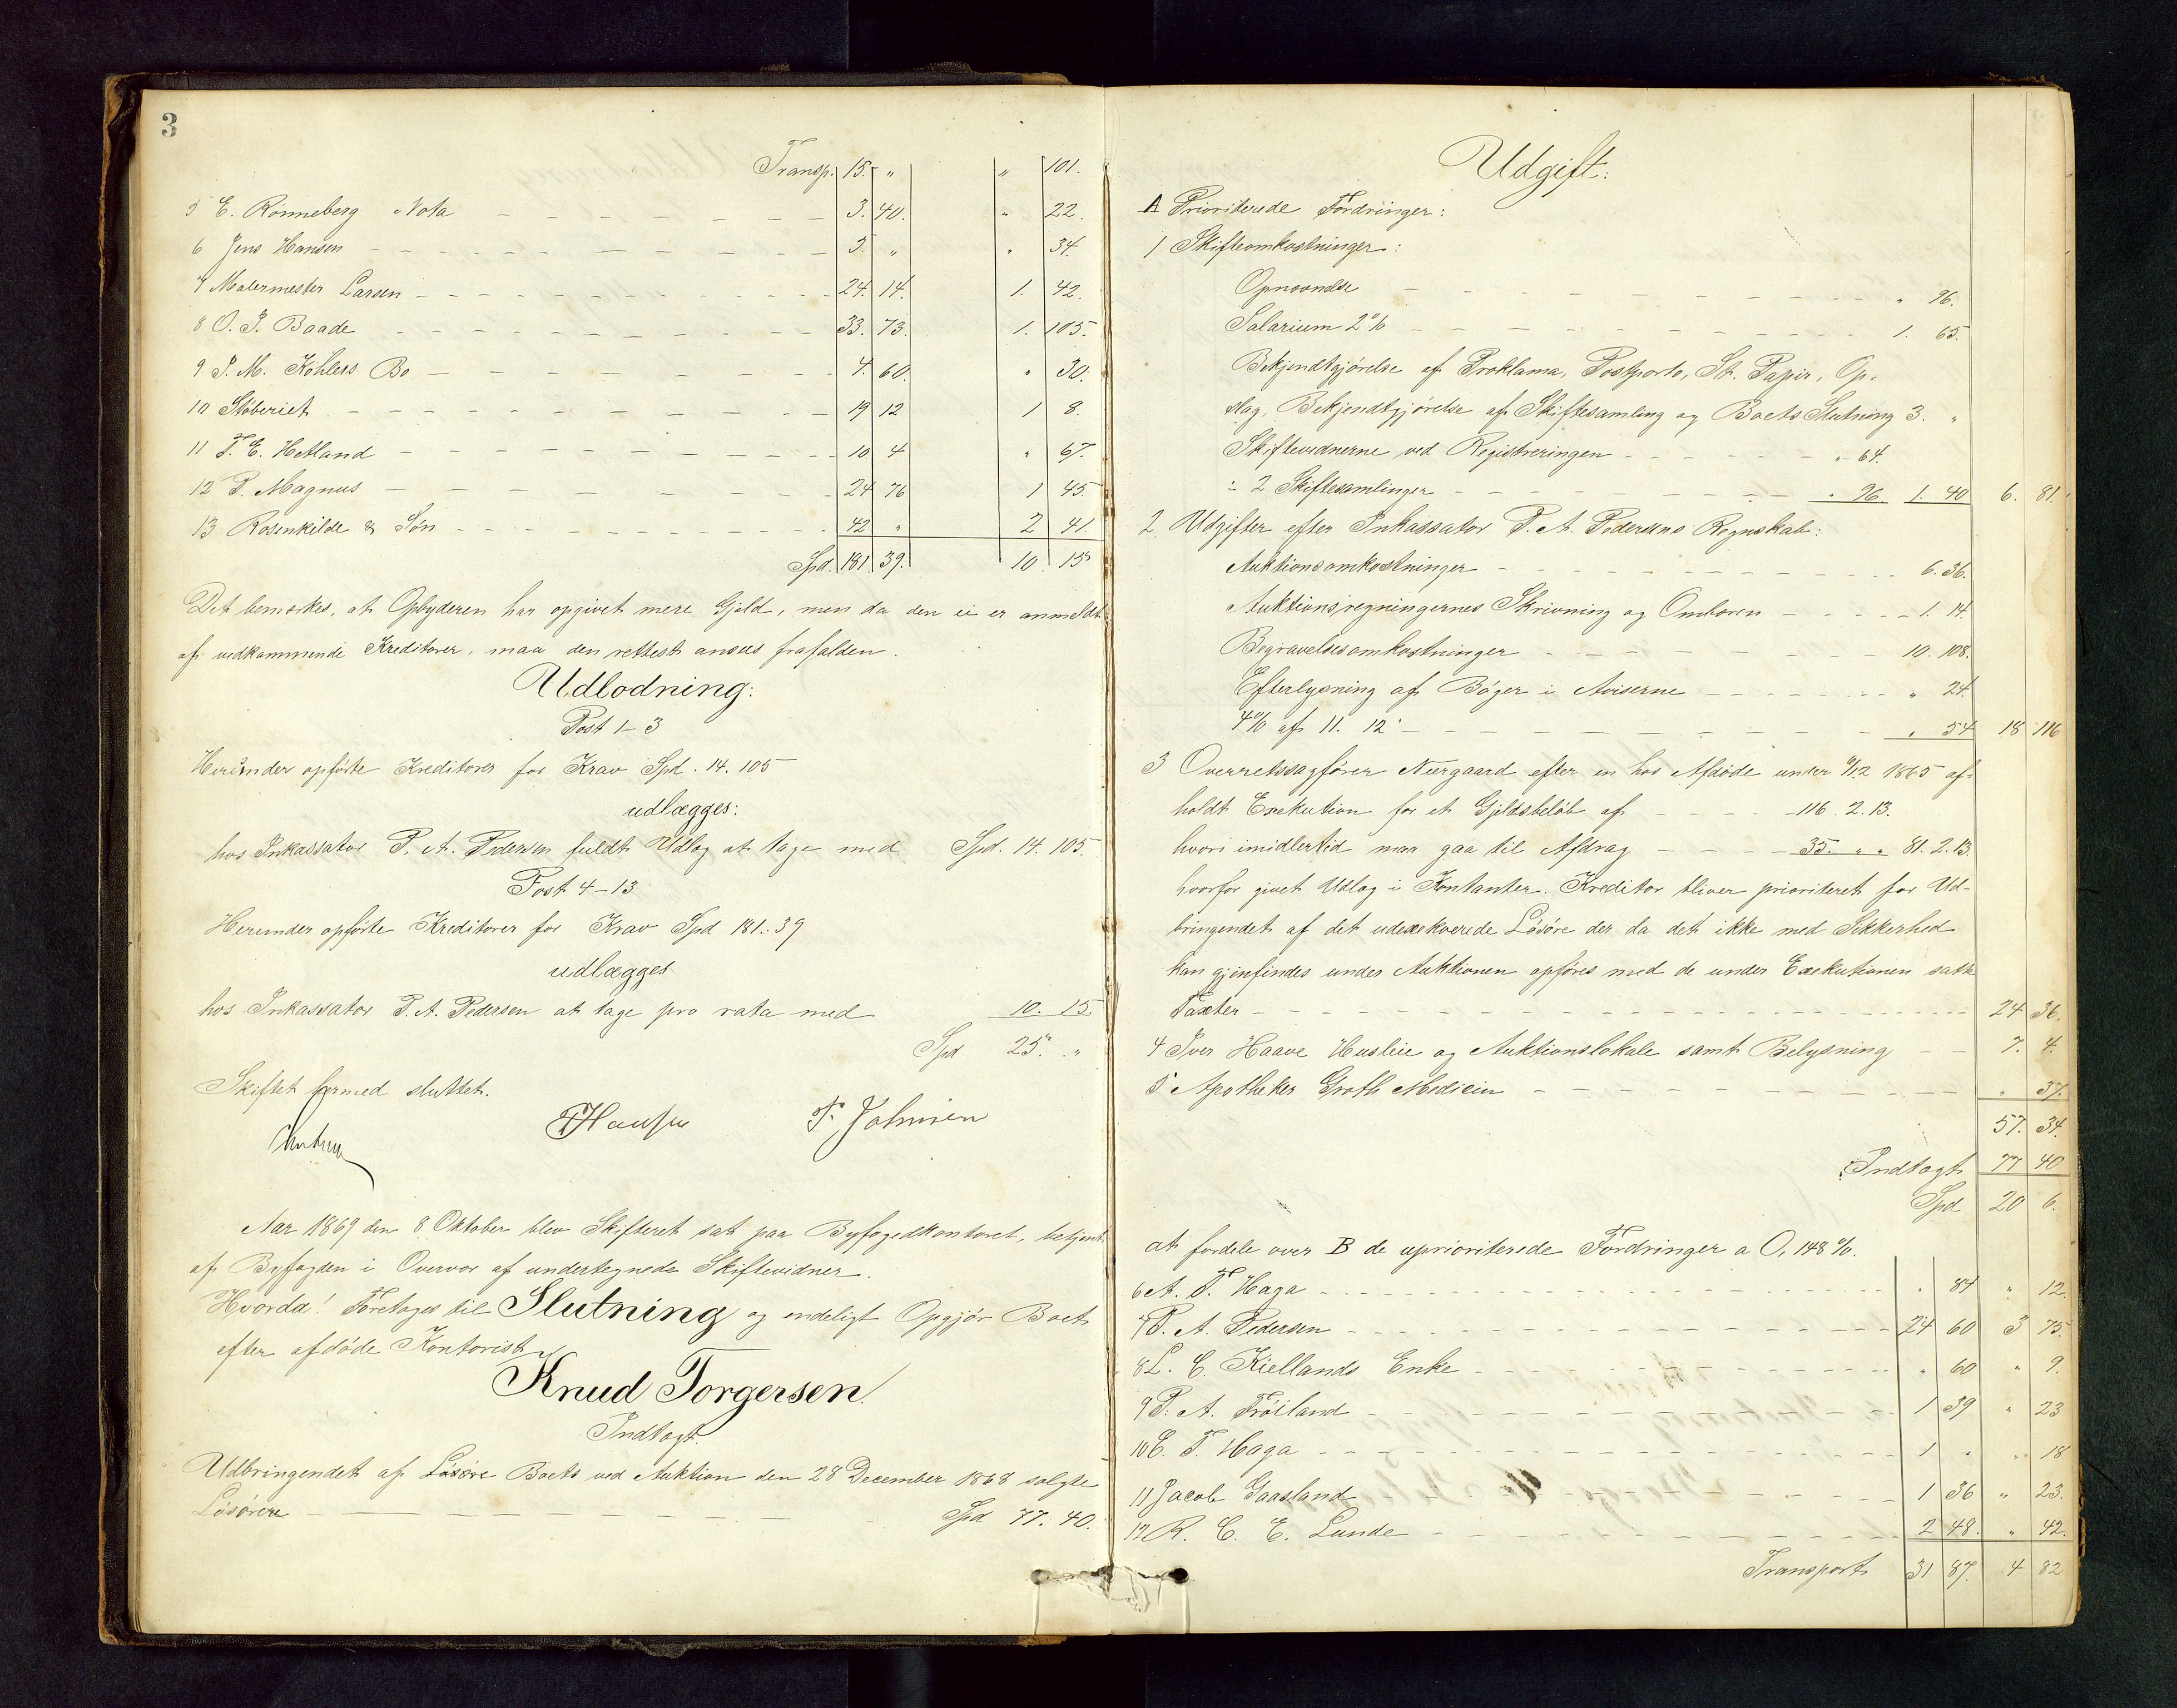 3
Transp. 15. " " 101.
5 E. Rönneberg Nota 3. 40. " 22.
6 Jens Hansen 5. " " 34.
7 Malermester Larsen 24. 14. 1. 42.
8 O. J. Baade 33. 73. 1. 105.
9 P. M. Kohlers Bo 4. 60. " 30.
10 Støberiet 19 12 1 8.
11 T. E. Hetland 10 4 " 67.
12 P. Magnus 24 76 1 45.
13 Rosenkilde & Søn 42 " 2 41.
Spd. 181. 39. 10. 15
Det bemærkes, at Opbyderen har opgivet mere Gjeld, men da den ei er anmeldt
af vedkommende Kreditorer, maa den rettest ansees frafalden.
Udlodning:
Post 1-3
Herunder opførte Kreditorer for Krav Spd. 14. 105
udlægges:
hos Inkassator P. A. Pedersen fuldt Udlæg at tage med Spd. 14. 105.
Post 4-13
Herunder opførte Kreditorer for Krav Spd 181. 39
udlægges
hos Inkassator P. A. Pedersen at tage pro rata med 10. 15.
Spd 25. "
Skiftet hermed sluttet.
Hansen T. Johnsen
Aar 1869 den 8 Oktober blev Skifteret sat paa Byfogedkontoret, betjent
af Byfogden i Overvær af undertegnede Skiftevidner.
Hvorda! Foretoges til Slutning og endeligt Opgjør Boet
efter afdøde Kontorist
Knud Torgersen
Indtægt.
Udbringendet af Løsøre Boets ved Auktion den 28 December 1868 solgte
Løsøre Spd 77. 40.
Udgift:
A Prioriterede Fordringer:
1 Skifteomkostninger:
Opnævnelse " 96.
Salarium 2% 1. 65.
Bekjendtgjørelse af Proklama, Postporto, St. Papir, Op-
slag, Bekjendtgjørelse af Skiftesamling og Boets Slutning 3. "
Skiftevidnerne ved Registreringen " 64.
" 2 Skiftesamlinger " 96. 1. 40 6. 81.
2 Udgifter efter Inkassator P. A. Pedersens Regnskab:
Auktionsomkostninger 6. 36.
Auktionsregningernes Skrivning og Ombæren 1. 14.
Begravelsesomkostninger 10. 108.
Efterlysning af Bøger i Aviserne " 24.
4% af 11. 12 " 54 18 116
3 Overretssagfører Neergaard efter en hos Afdøde under 9/12 1865 af-
holdt Exekution for et Gjeldsbeløb af 116. 2. 13.
hvori imidlertid maa gaa til Afdrag 35. " " 81. 2. 13.
hvorfor givet Udlæg i Kontanter. Kreditor bliver prioriteret for Ud-
bringendet af det udexekverede Løsøre der da det ikke med Sikkerhed
kan gjenfindes under Auktionen opføres med de under Exekutionen satte
Taxter 24 36.
4 Iver Haave Husleie og Auktionslokale samt Belysning 7. 4.
5 Apotheker Groth Medicin " 37.
57. 34.
Indtægt 77 40
Spd 20 6.
at fordele over B de uprioriterede Fordringer a 0,148 %.
6 A. T. Haga " 84 " 12.
7 P. A. Pedersen 24 60 3 75.
8 L. C. Kiellands Enke " 60 " 9.
9 P. A. Frøiland 1 39 " 23
10 E. T. Haga 1 " " 18
11 Jacob Gaasland 1 36 " 23.
12 R. C. E. Lunde 2 48. " 42.
Transport 31 87. 4 82